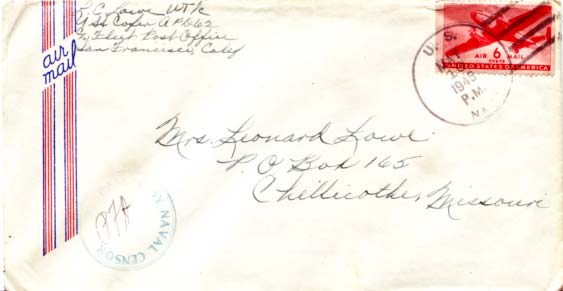 L. C. Lowe WT1c
USS Cofer APD62
Fleet Post Office
San Francisco, Calif
air
mail
U. S.
1945
P.M.
AIR 6 MAIL
CENTS
UNITED STATES OF AMERICA
Mrs. Leonard Lowe
P. O Box 165
Chillicothe, Missouri
NAVAL CENSOR